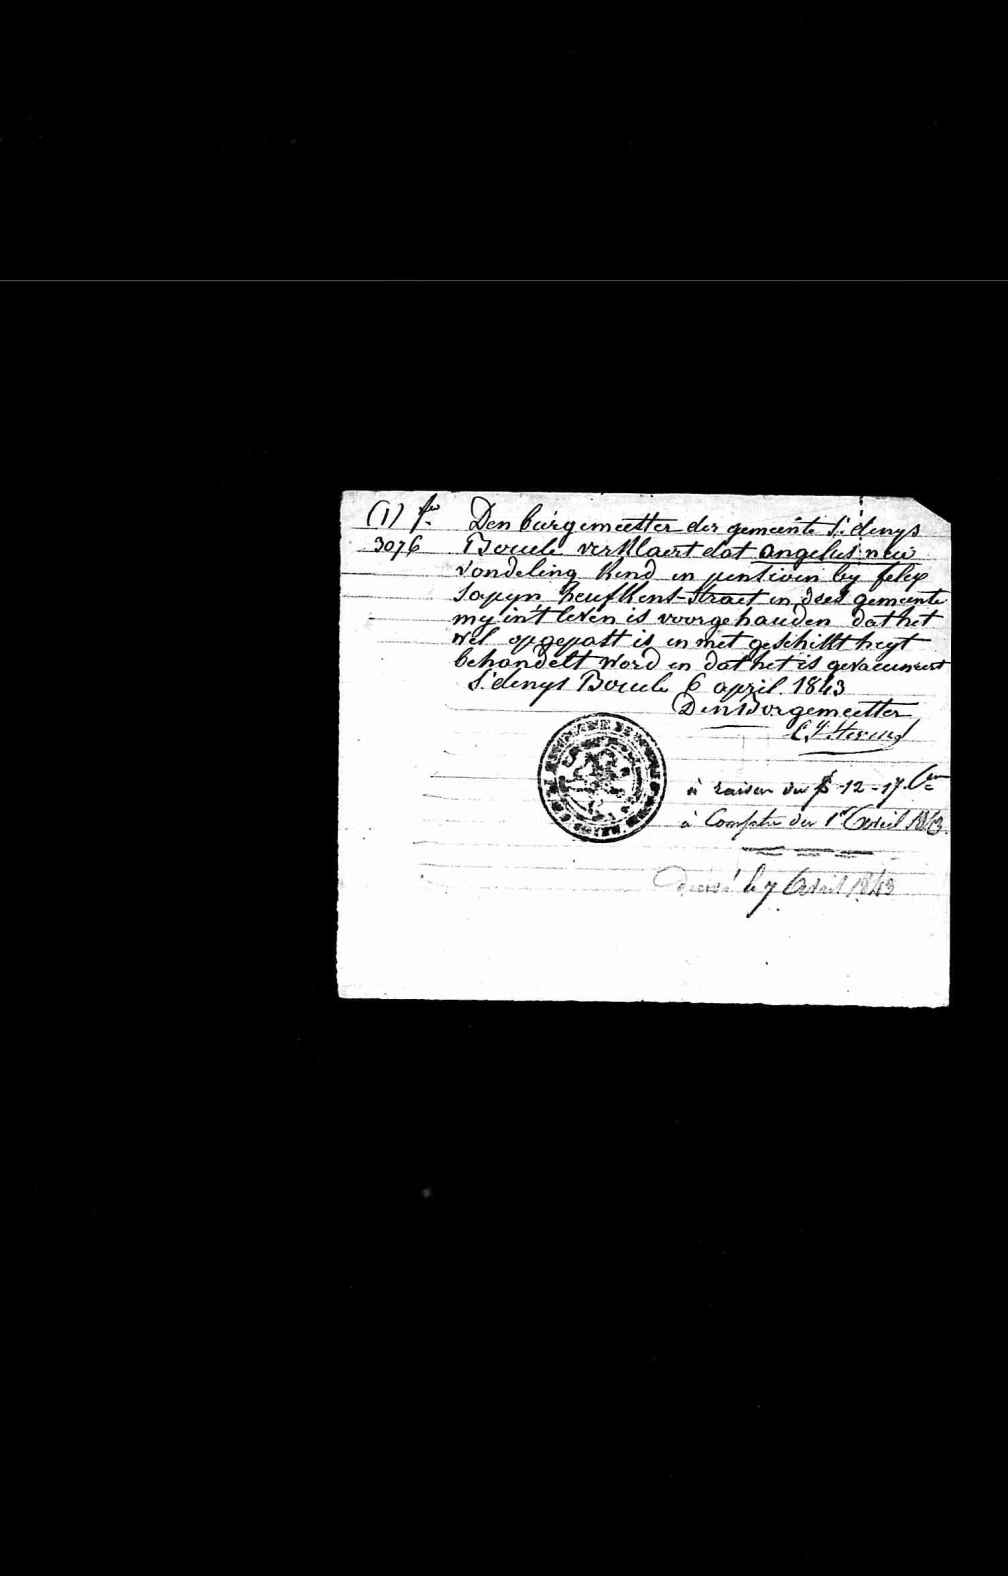 (1) f.
Den burgemeester der gemeente S.t denys
3076 Boucle verklaert dat angelus neu
vondeling kind en pensioen by felix
sapyn heufkens-straet in dees gemeente
my in't leven is voorgehouden dat het
wel opgepast is en met geschiktheyt
behandelt word en dat het is gevaccineert
S.t denys Boucle 6 april 1843
Den Borgemeester
à raison de f 12-17 C.
à Compter du 1.er Avril 1843.
le 7 Avril 1843